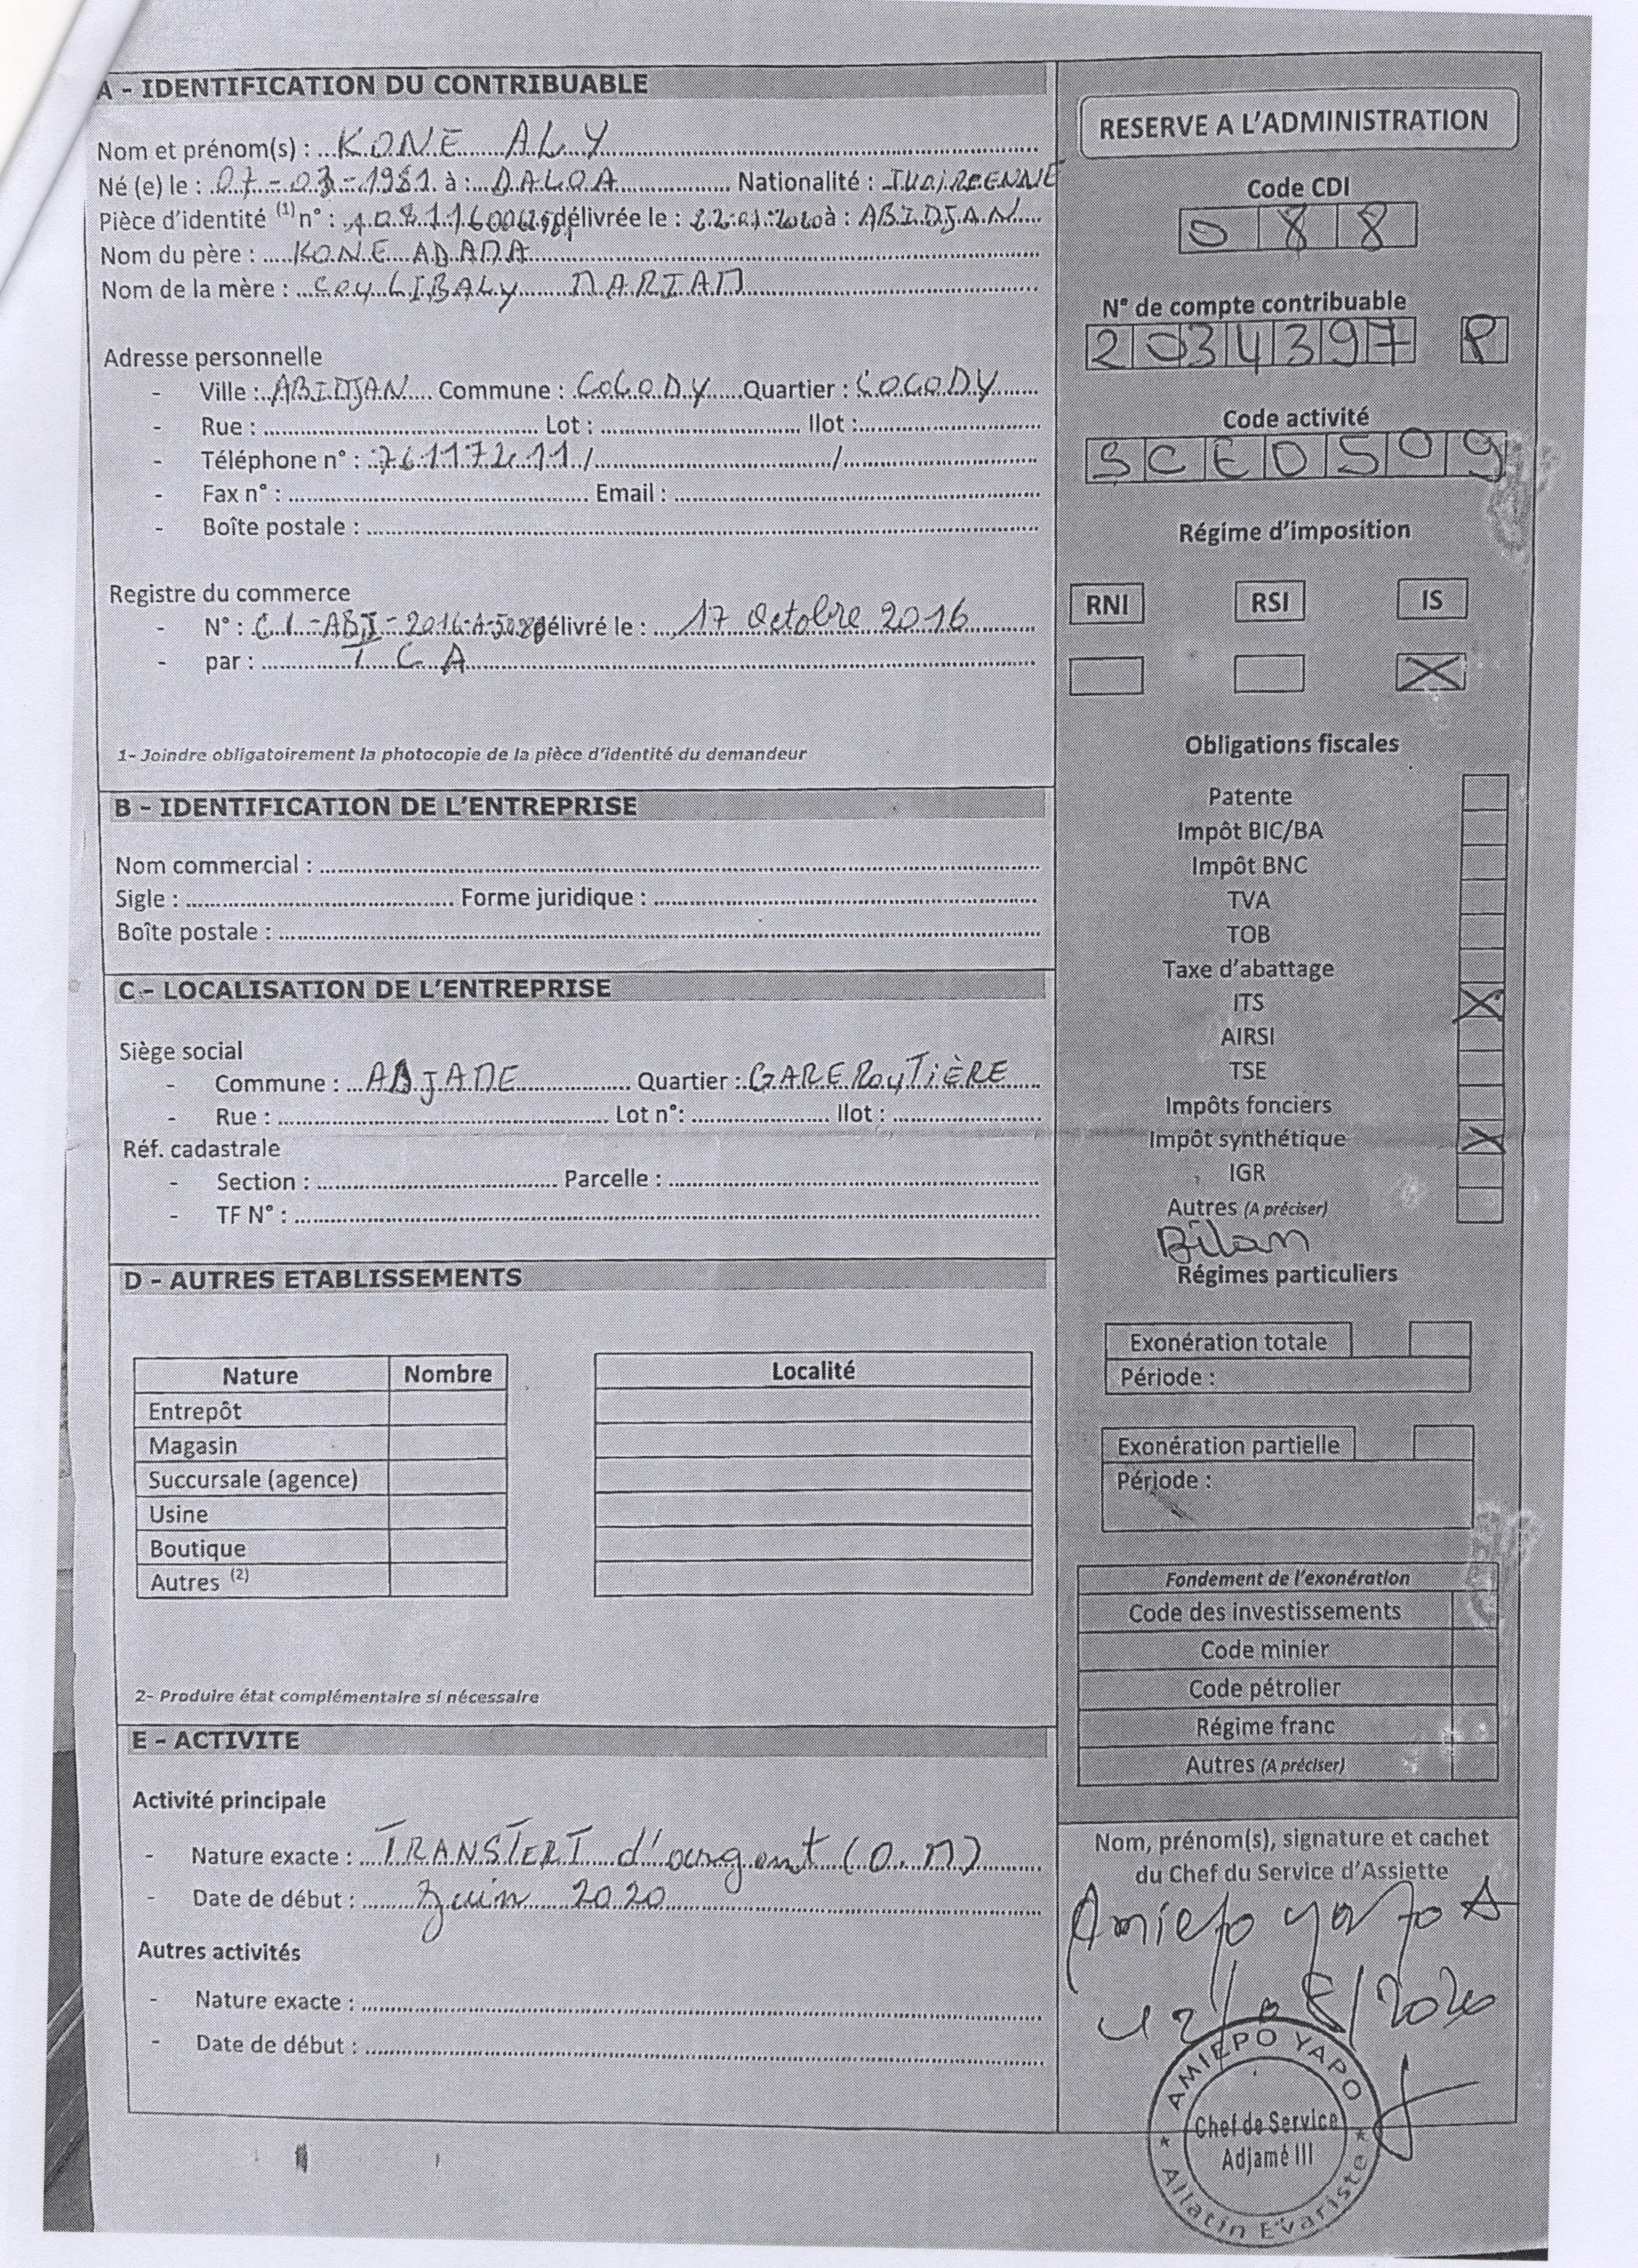 A - IDENTIFICATION DU CONTRIBUABLE
Nom et prénom(s) : KONE ALY
Né (e) le : 07-03-1981 à : DALOA Nationalité : IVOIREENNE
Pièce d'identité (1) n° : délivrée le : à : ABIDJAN
Nom du père : KONE ADAMA
Nom de la mère : COULIBALY MARIAM
Adresse personnelle
- Ville : ABIDJAN Commune : COCODY Quartier : COCODY
- Rue : Lot : Ilot :
- Téléphone n° : / /
- Fax n° : Email :
- Boîte postale :
Registre du commerce
- N° : délivré le : 17 Octobre 2016
- par : T C A
1- Joindre obligatoirement la photocopie de la pièce d'identité du demandeur
B - IDENTIFICATION DE L'ENTREPRISE
Nom commercial :
Sigle : Forme juridique :
Boîte postale :
C - LOCALISATION DE L'ENTREPRISE
Siège social
- Commune : ADJAME Quartier : GARE ROUTIÈRE
- Rue : Lot n°: Ilot :
Réf. cadastrale
- Section : Parcelle :
- TF N° :
D - AUTRES ETABLISSEMENTS
Nature Nombre Localité
Entrepôt
Magasin
Succursale (agence)
Usine
Boutique
Autres (2)
2- Produire état complémentaire si nécessaire
E - ACTIVITE
Activité principale
- Nature exacte : TRANSFERT d'argent (O.M)
- Date de début : Juin 2020
Autres activités
- Nature exacte :
- Date de début :
RESERVE A L'ADMINISTRATION
Code CDI
088
N° de compte contribuable
2034397 P
Code activité
SCE0509
Régime d'imposition
RNI RSI IS
X
Obligations fiscales
Patente
Impôt BIC/BA
Impôt BNC
TVA
TOB
Taxe d'abattage
ITS X
AIRSI
TSE
Impôts fonciers
Impôt synthétique X
IGR
Autres (A préciser)
Bilan
Régimes particuliers
Exonération totale
Période :
Exonération partielle
Période :
Fondement de l'exonération
Code des investissements
Code minier
Code pétrolier
Régime franc
Autres (A préciser)
Nom, prénom(s), signature et cachet
du Chef du Service d'Assiette
Amiepo yapo A
AMIEPO YAPO
Chef de Service
Adjamé III
Allatin Evariste